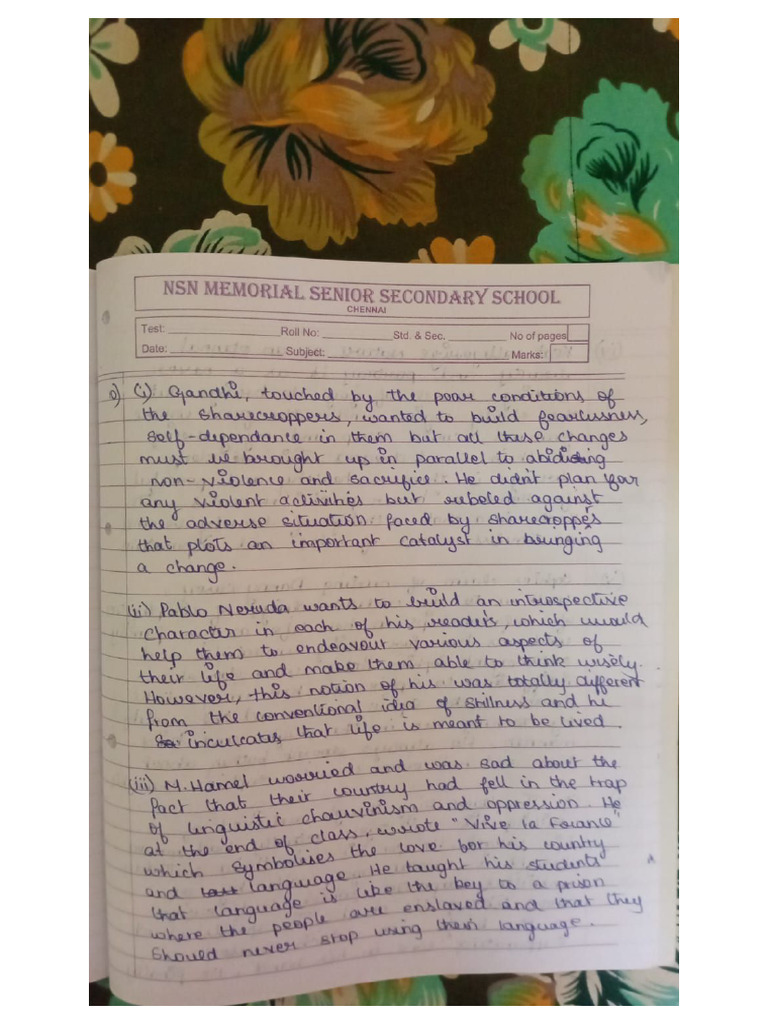 NSN MEMORIAL SENIOR SECONDARY SCHOOL
CHENNAI
Test: Roll No: Std. & Sec. No of pages
Date: Subject: Marks:
(i) Gandhi, touched by the poor conditions of
the sharecroppers, wanted to build fearlessness,
self-dependance in them but all these changes
must be brought up in parallel to abiding
non-violence and sacrifice. He didn't plan for
any violent activities but rebeled against
the adverse situation faced by sharecroppe's
that plots an important catalyst in bringing
a change.
(ii) Pablo Neruda wants to build an introspective
character in each of his readers, which would
help them to endeavour various aspects of
their life and make them, able to think wisely.
However, this notion of his was totally different
from the conventional idea of stillness and he
inculcates that life is meant to be lived.
(iii) M. Hamel worried and was sad about the
fact that their country had fell in the trap
of linguistic chauvinism and oppression. He
at the end of class, wrote "Vive la France"
which symbolises the love for his country
and language. He taught his students
that language is like the key to a prison
where the people are enslaved and that they
should never stop using their language.